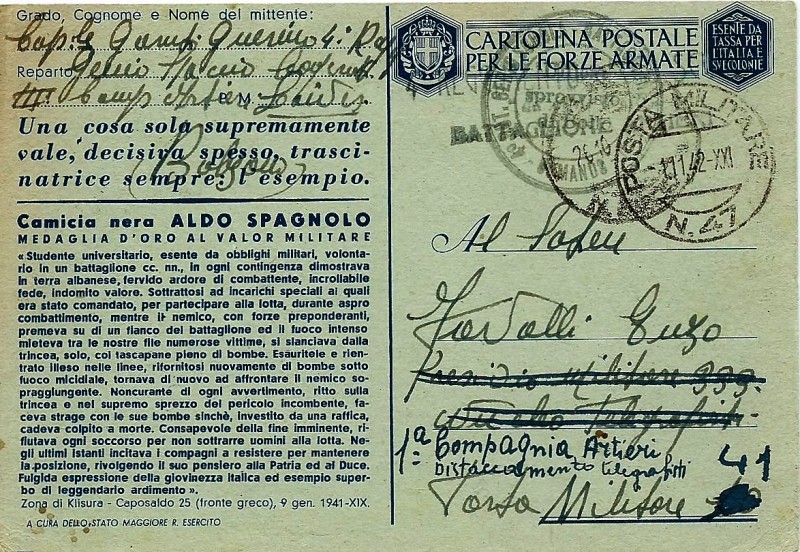 Grado, Cognome e Nome del mittente:
Reparto
P. M.
Una cosa sola supremamente
vale, decisiva spesso, trasci-
natrice sempre: l'esempio.
Camicia nera ALDO SPAGNOLO
MEDAGLIA D'ORO AL VALOR MILITARE
«Studente universitario, esente da obblighi militari, volonta-
rio in un battaglione cc. nn., in ogni contingenza dimostrava
in terra albanese, fervido ardore di combattente, incrollabile
fede, indomito valore. Sottrattosi ad incarichi speciali ai quali
era stato comandato, per partecipare alla lotta, durante aspro
combattimento, mentre il nemico, con forze preponderanti,
premeva su di un fianco del battaglione ed il fuoco intenso
mieteva tra le nostre file numerose vittime, si slanciava dalla
trincea, solo, coi tascapane pieno di bombe. Esauritele e rien-
trato illeso nelle linee, rifornitosi nuovamente di bombe sotto
fuoco micidiale, tornava di nuovo ad affrontare il nemico so-
praggiungente. Noncurante di ogni avvertimento, ritto sulla
trincea e nel supremo sprezzo del pericolo incombente, fa-
ceva strage con le sue bombe sinchè, investito da una raffica,
cadeva colpito a morte. Consapevole della fine imminente, ri-
fiutava ogni soccorso per non sottrarre uomini alla lotta. Ne-
gli ultimi istanti incitava i compagni a resistere per mantenere
la posizione, rivolgendo il suo pensiero alla Patria ed al Duce.
Fulgida espressione della giovinezza italica ed esempio super-
bo di leggendario ardimento».
Zona di Klisura - Caposaldo 25 (fronte greco), 9 gen. 1941-XIX.
A CURA DELLO STATO MAGGIORE R. ESERCITO
CARTOLINA POSTALE
PER LE FORZE ARMATE
ESENTE DA
TASSA PER
L'ITALIA E
SVE COLONIE
sprovvisto
di
BATTAGLIONE
COMANDO
POSTA MILITARE
1.11.42-XXI
N. 47
Al
Enzo
Presidio Militare
1ª Compagnia Artieri
Distaccamento telegrafisti
Militare 41